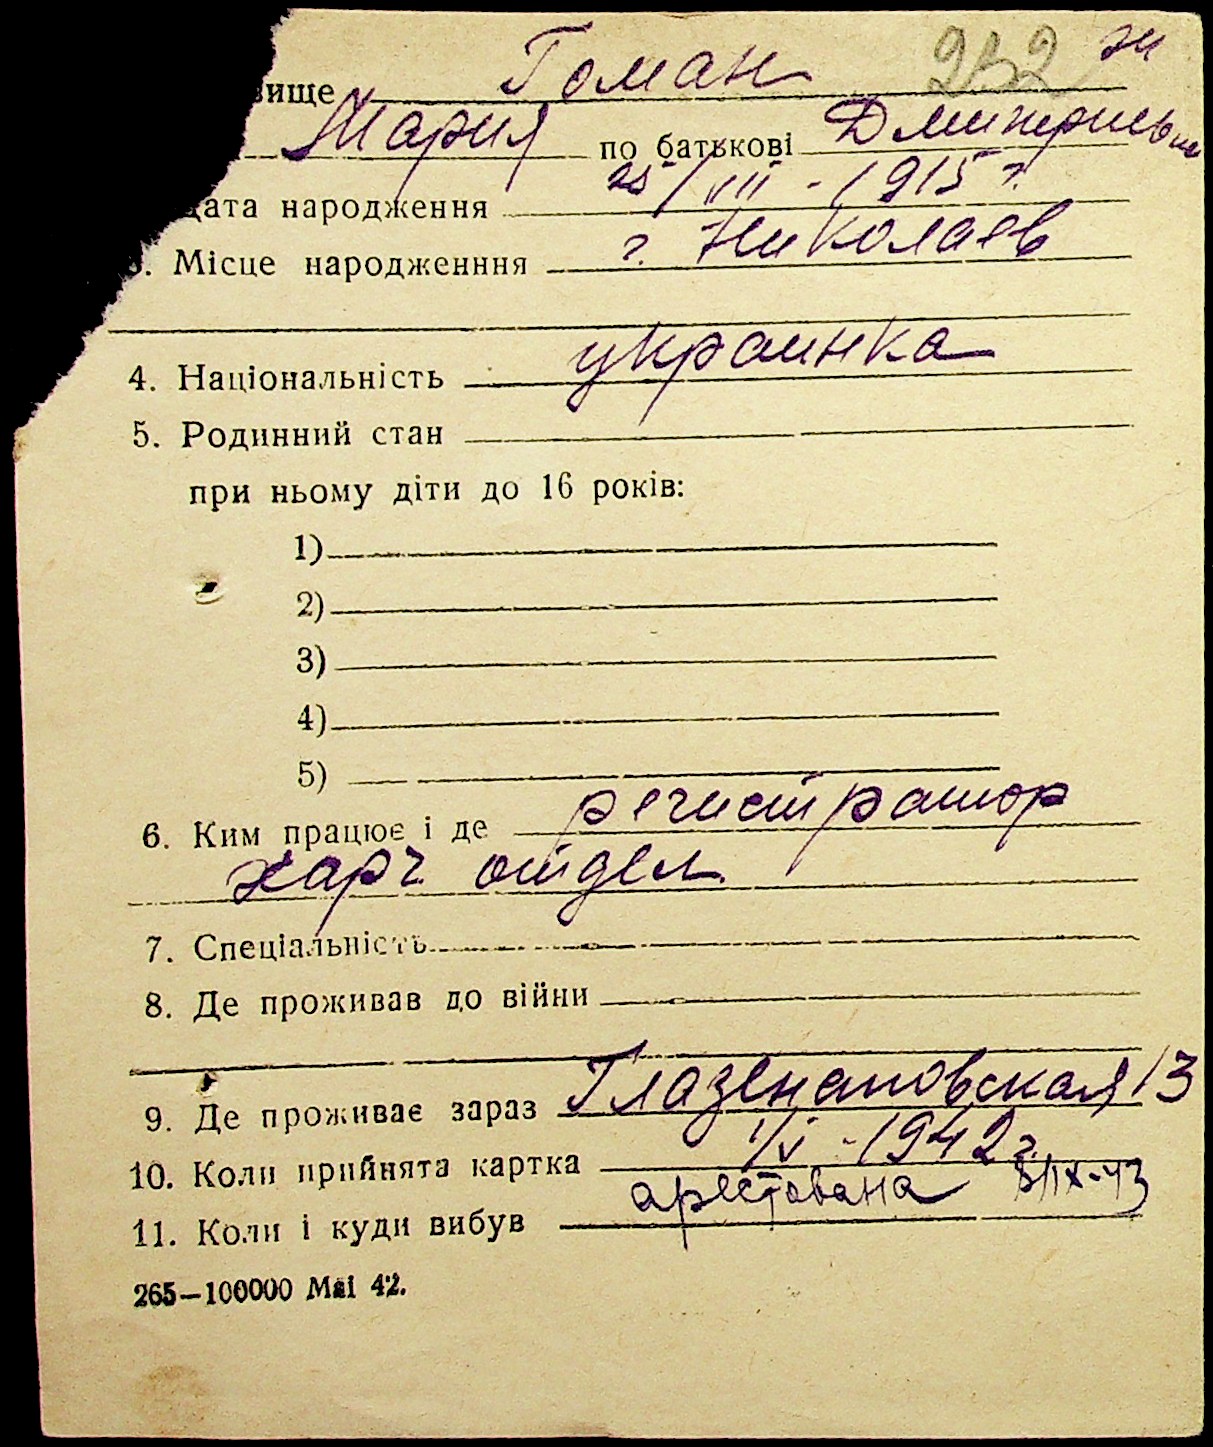 вище Гоман 232
Мария по батькові
Дата народження 25/VIII - 1915 г.
3. Місце народженння г. Николаев
4. Національність украинка
5. Родинний стан
при ньому діти до 16 років:
1)
2)
3)
4)
5)
6. Ким працює і де регистратор
харч. отдел.
7. Спеціальність
8. Де проживав до війни
9. Де проживає зараз Глазенаповская 13
10. Коли прийнята картка 1/V - 1942 г.
11. Коли і куди вибув арестована 8/IX-43
265—100000 Mai 42.